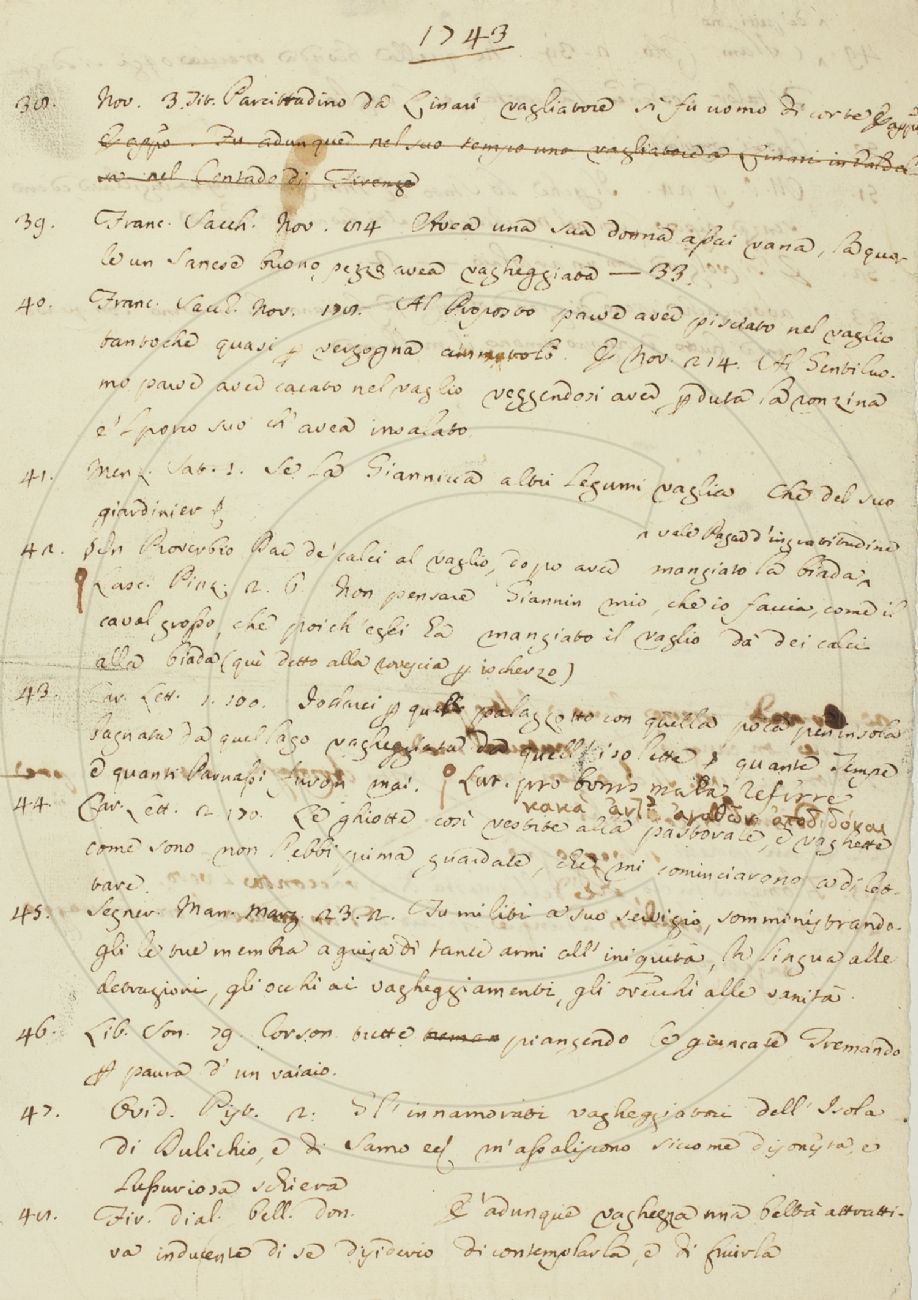 1743
38. Nov. 3. tit. Parcittadino da Linari vagliatore si fa uomo di corte E appo
E appo. Fu adunque nel suo tempo uno vagliatore a Linari in Valdel-
sa nel Contado di Firenze
39. Franc. Sacch. Nov. 84 Avea una sua donna assai vana, la qua-
le un Sanese buono pezzo avea vagheggiata — 33.
40. Franc. Sacch. Nov. 178. Al Proposto parve aver pisciato nel vaglio
tantoché quasi p vergogna ammutolò. E Nov. 214. Al Gentiluo-
mo parve aver cacato nel vaglio veggendosi aver pduta la ronzina
e 'l porco suo ch' avea insalato
41. Menz. Sat. 1. Se la Giannicca altri legumi vaglia che del suo
giardinier
n vale Pagar d'ingratitudine
42. In Proverbio Dar de' calci al vaglio, dopo aver mangiato la biada,
Lasc. Pinz. 2. 6 Non pensare Giannin mio, che io faccia, come il
caval grosso, che poich' egli ha mangiato il vaglio dà dei calci
alla biada (qui detto alla rovescia p ischerzo)
43. Car. Lett. 1. 100. Iodarci p quel palazzotto con quella poca penisola
bagnata da quel lago vagheggiata da quell' isolette quante Tempe
e quanti Parnassi furon mai. Lat. pro bonis mala referre
κακὰ ἀντὶ ἀγαθῶν ἀποδιδόναι
44. Car. Lett. 2 170. Le ghiotte così vestite alla pastorale, e vaghette
come sono non l'ebbi prima guardate, che mi cominciarono a dilet-
tare.
45. Segner. Man. Marz. 23. 2. Tu militi a suo servigio, somministrando-
gli le tue membra a guisa di tante armi all' iniquità, la lingua alle
detrazioni, gli occhi ai vagheggiamenti, gli orecchi alle vanità.
46. Lib. Son. 79. Corson tutte piangendo le giuncate Tremando
p paura d' un vaiaio.
47. Ovid. Pist. 2. Gl' innamorati vagheggiatori dell' Isola
di Dulichio, e di Samo ec m' assaliscono siccome disonesta, e
lussuriosa schiera
48. Fir. dial. bell. don. E' adunque vaghezza una beltà attratti-
va inducente di sé disiderio di contemplarla, e di fruirla